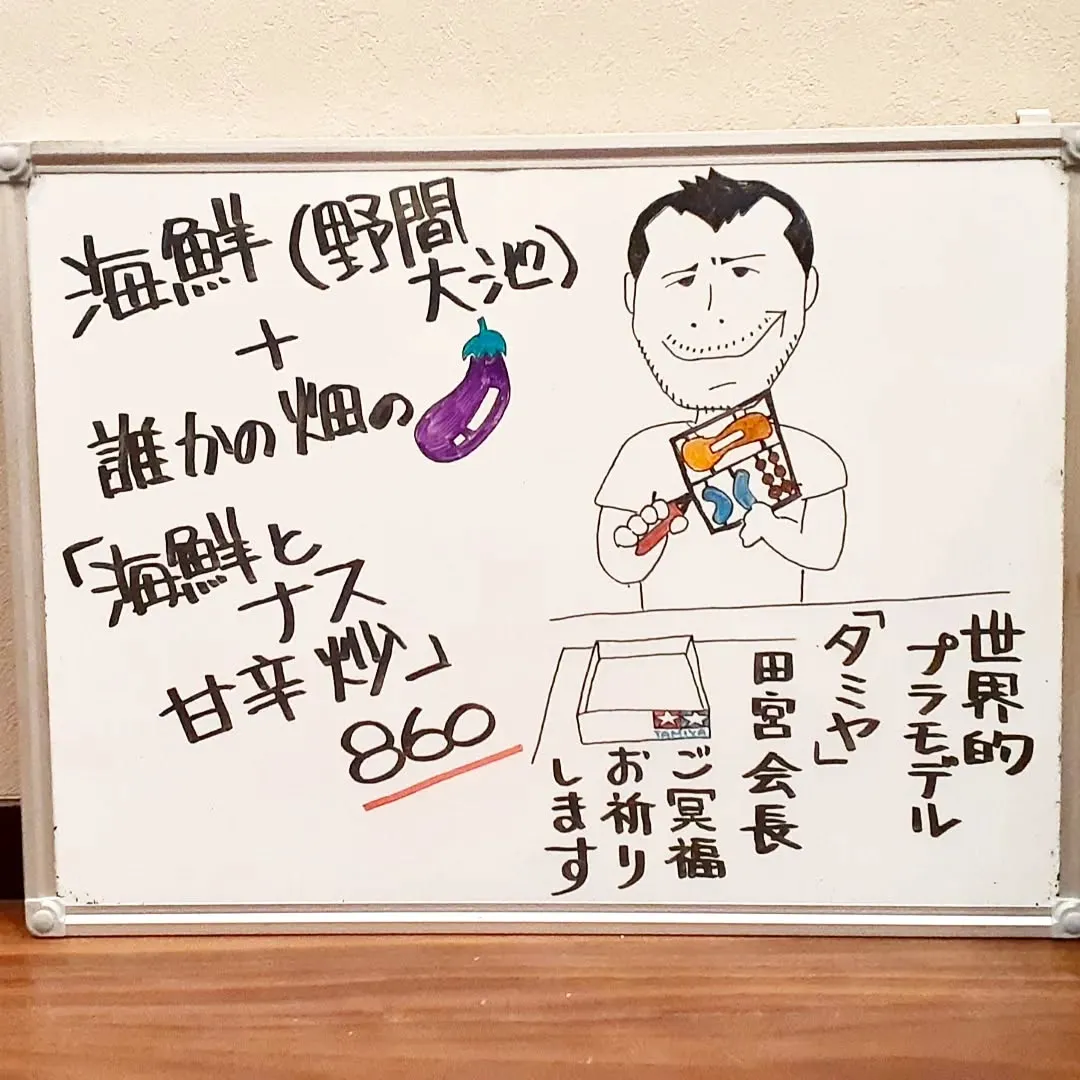 海鮮(野間
大池)
+
誰かの畑の
「海鮮と
ナス
甘辛炒」
860
世界的
プラモデル
「タミヤ」
田宮会長
ご冥福
お祈り
します
TAMIYA